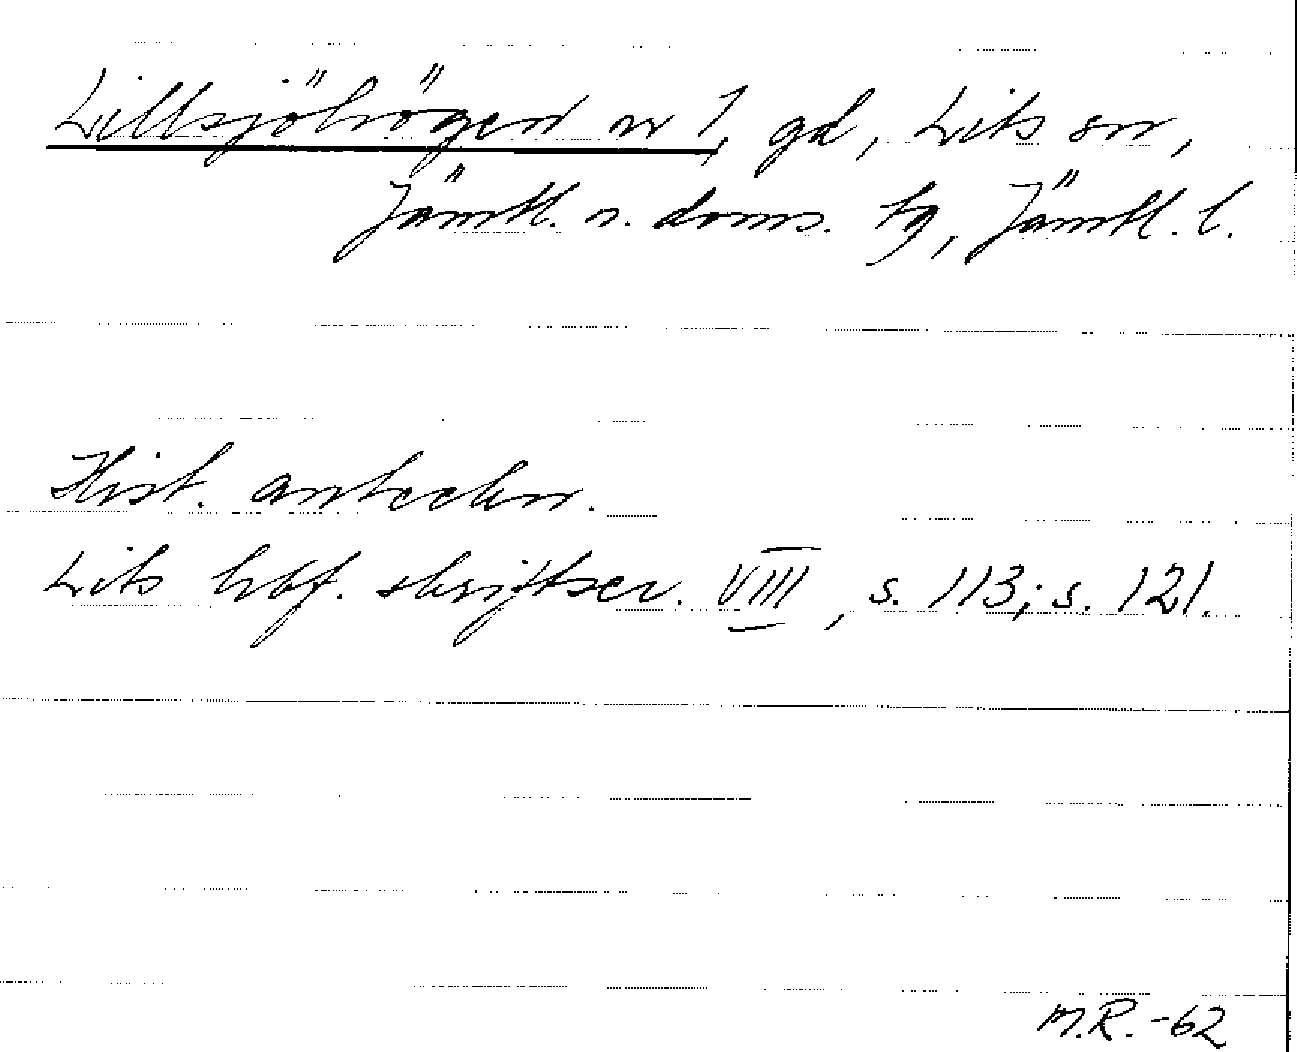 Lillsjöhögen nr 1, gd, Lits sn,
Jämtl. n. doms. tg, Jämtl. l.
Hist. anteckn.
Lits hbf. skriftser. VIII, s. 113; s. 121.
M.R. -62